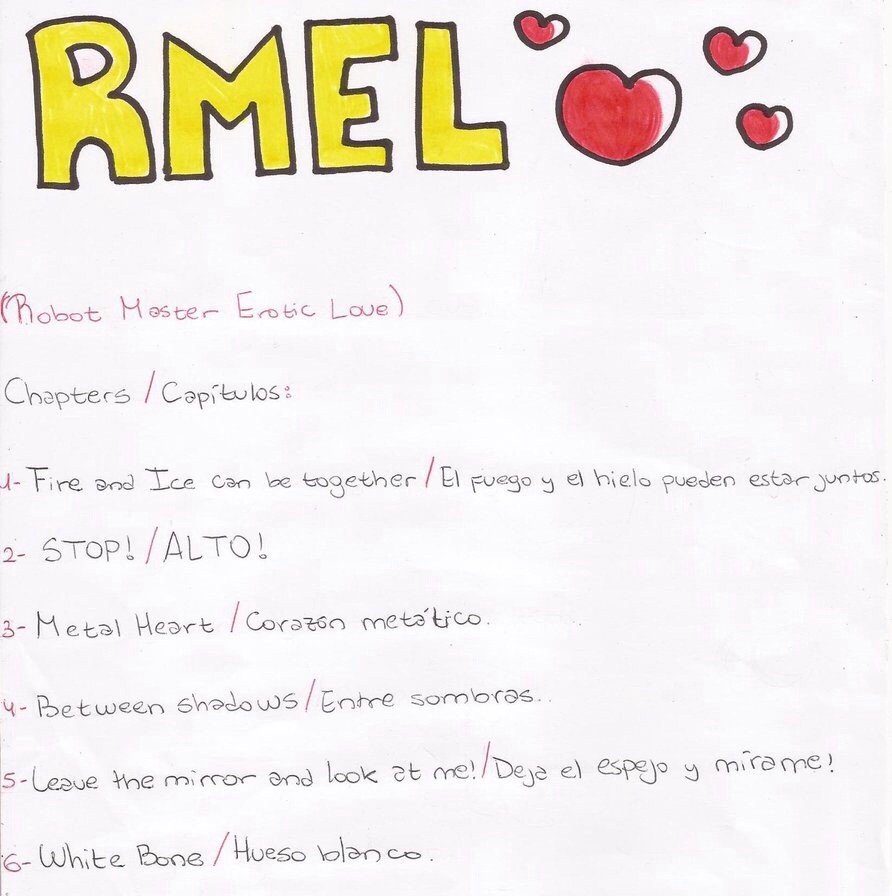 RMEL
(Robot Master Erotic Love)
Chapters / Capítulos:
1- Fire and Ice can be together / El fuego y el hielo pueden estar juntos.
2- STOP! / ALTO!
3- Metal Heart / Corazón metático.
4- Between shadows / Entre sombras..
5- Leave the mirror and look at me! / Deja el espejo y mírame!
6- White Bone / Hueso blanco.